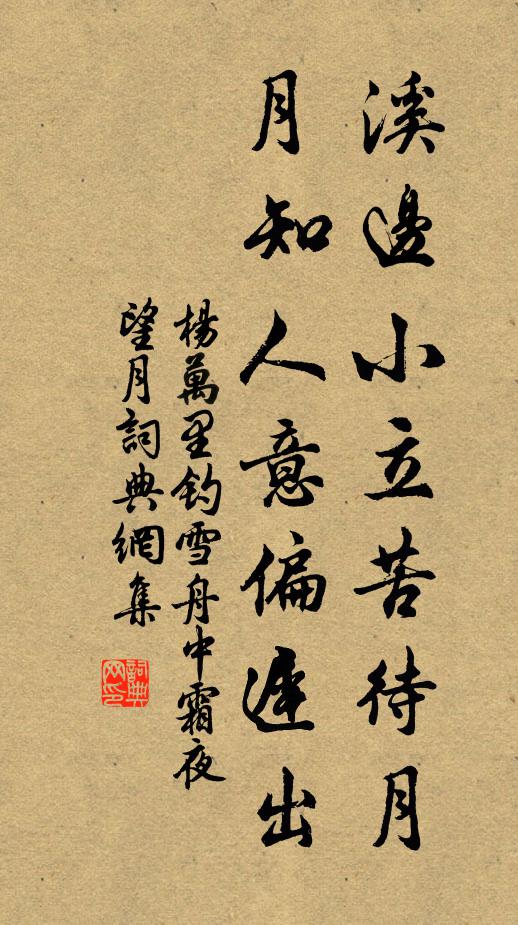 溪邊小立苦待月
月知人意偏遲出
楊萬里釣雪舟中霜夜
望月詞典網集
詞典
网印